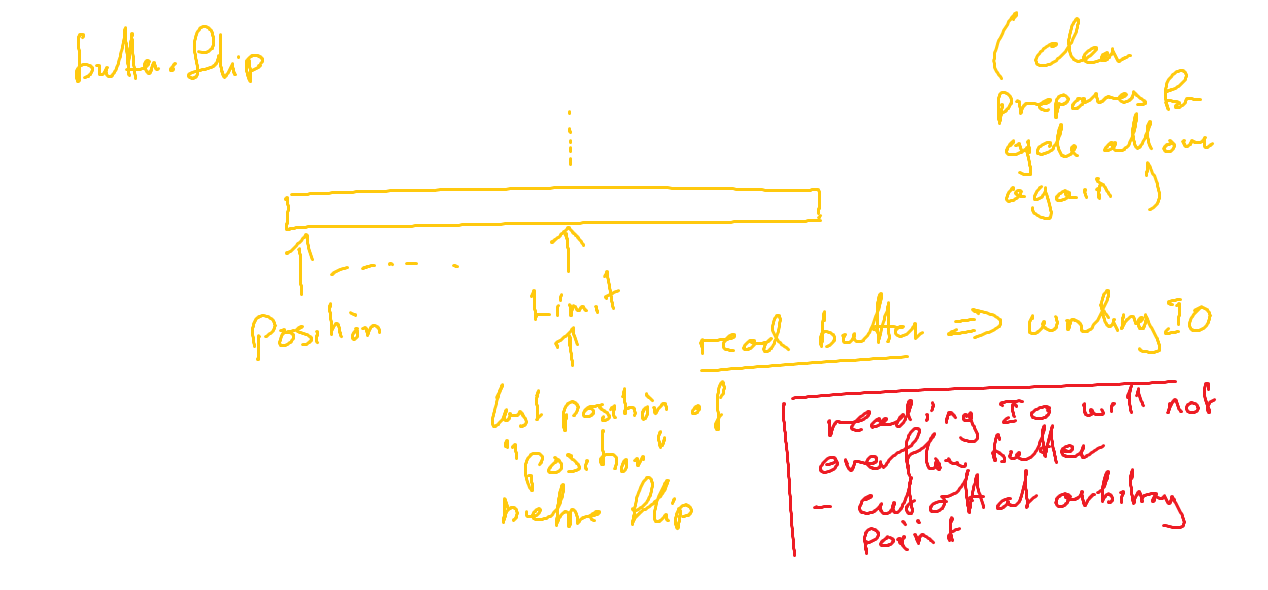 buffer.flip
(clear
prepares for
cycle all over
again)
Position
Limit
last position of
"position"
before flip
read buffer => writing IO
reading IO will not
overflow buffer
- cut off at arbitrary
point